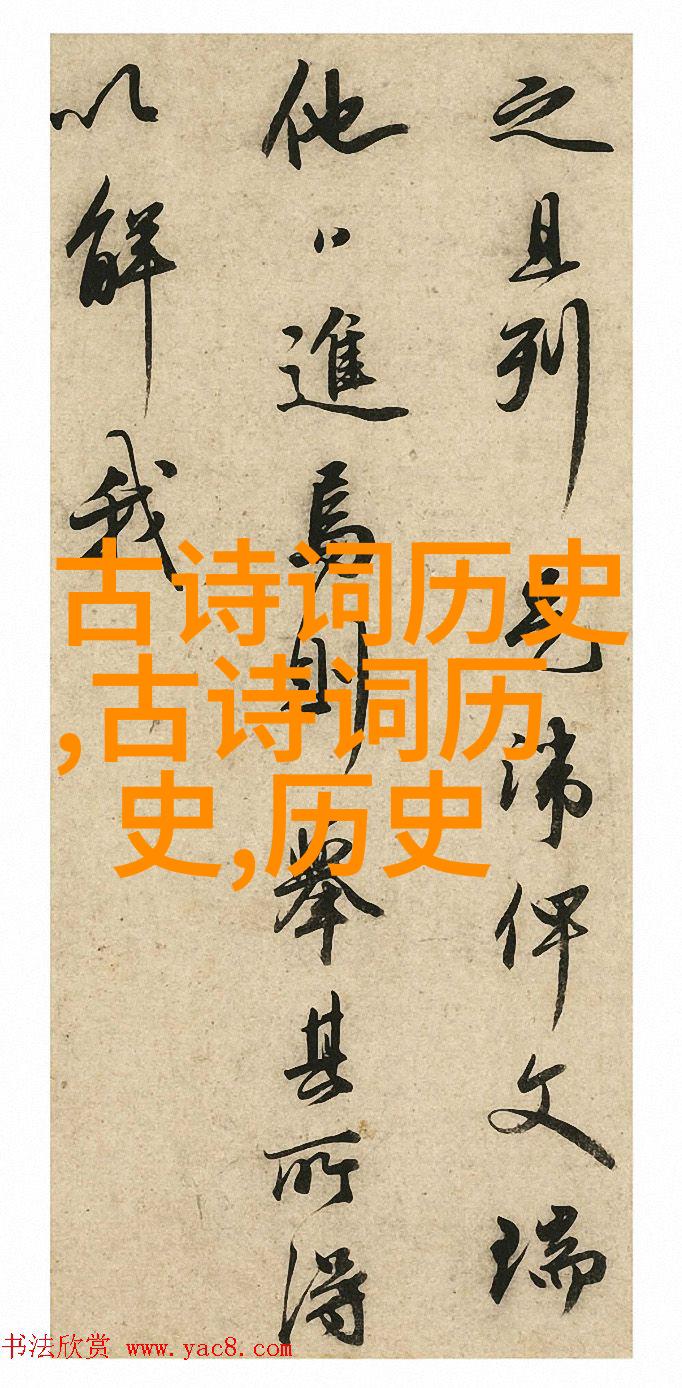 之且列先諱俾文瑞
他進焉則舉其所得
以解我
古诗词历史
,古诗词历
史,历史
书法欣赏 www.yac8.com